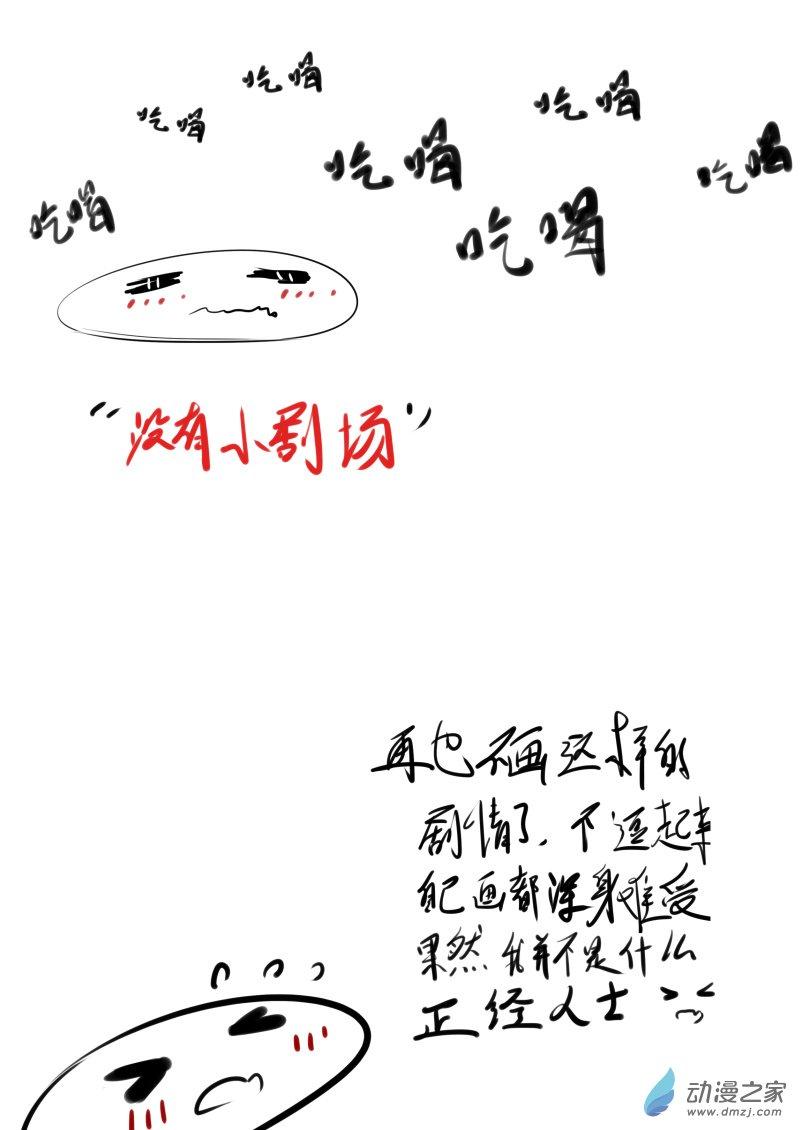 吃喝
吃喝
吃喝
吃喝
吃喝
吃喝
吃喝
“没有小剧场”
再也不画这样的
剧情了、不逗起来
自己画都浑身难受
果然我并不是什么
正经人士
动漫之家
www.dmzj.com